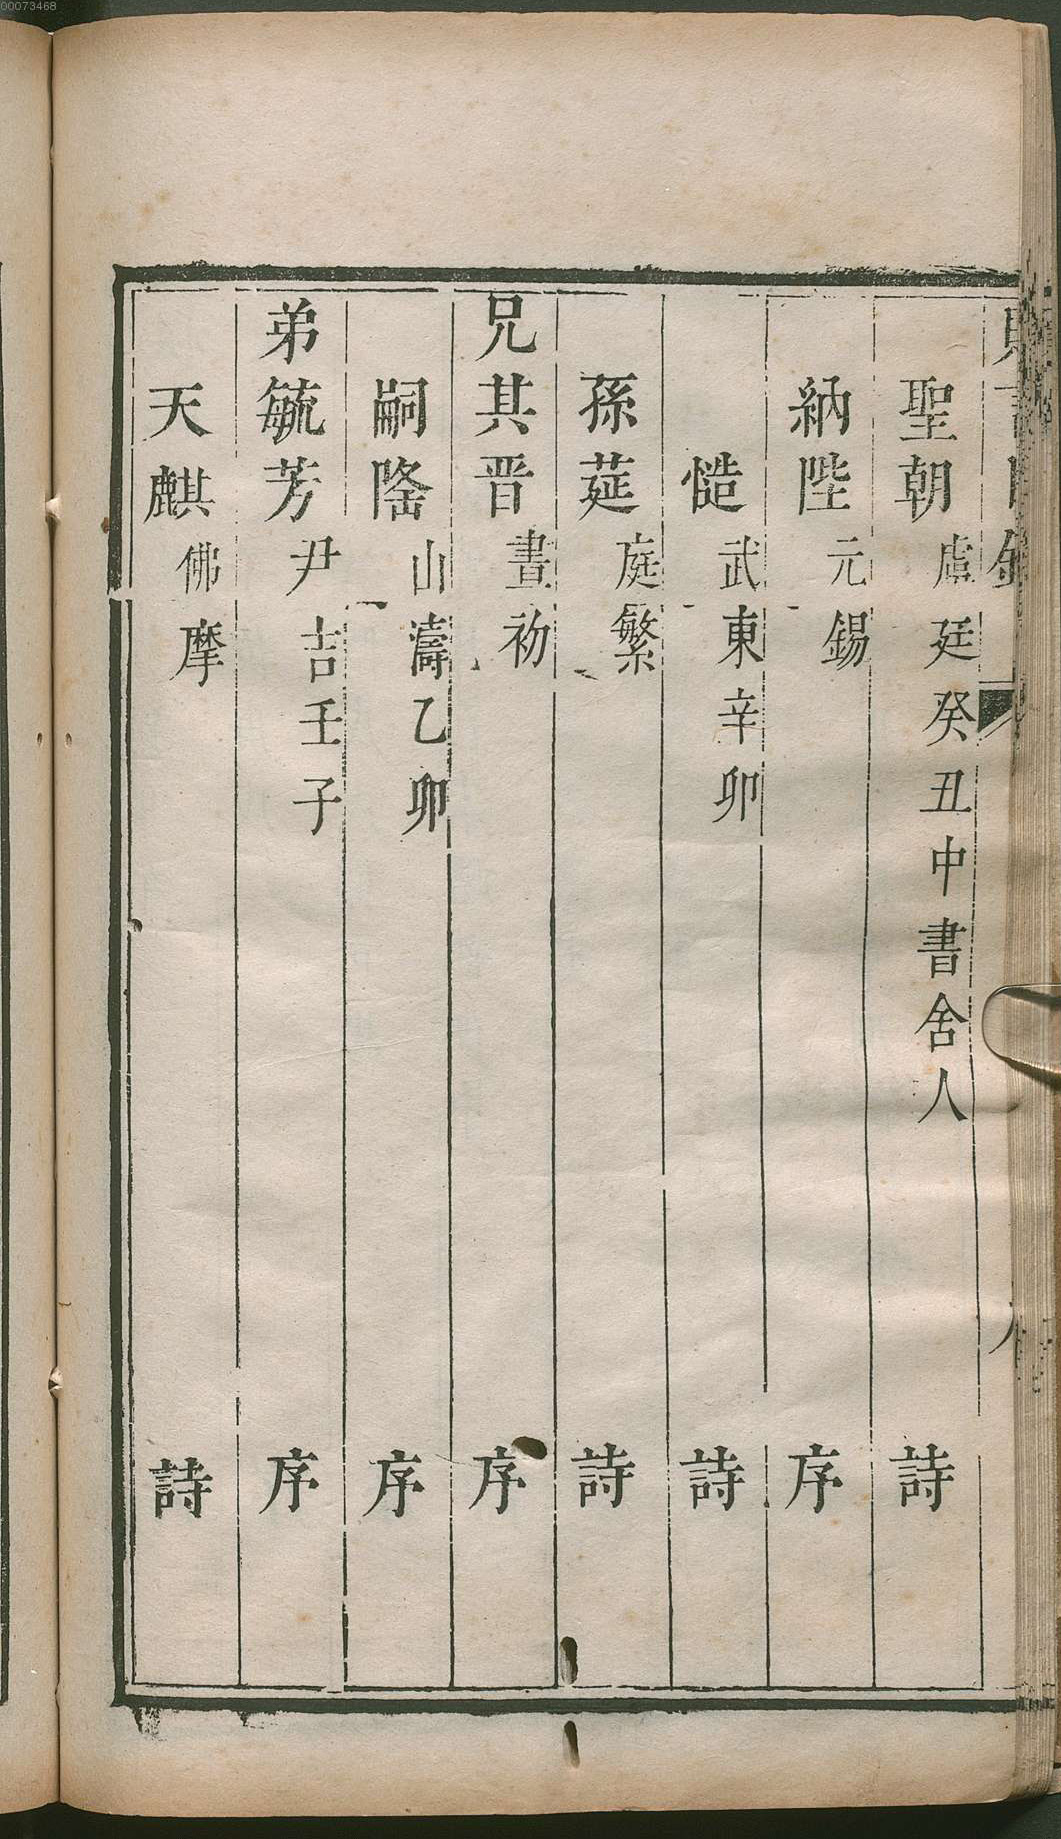 00073468
聖朝 虞廷癸丑中書舍人 詩
納陛 元錫 序
慥 武東辛卯 詩
孫莚 庭繁 詩
兄其晋 晝初 序
嗣隆 山濤乙卯 序
弟毓芳 尹吉壬子 序
天麒 佛摩 詩